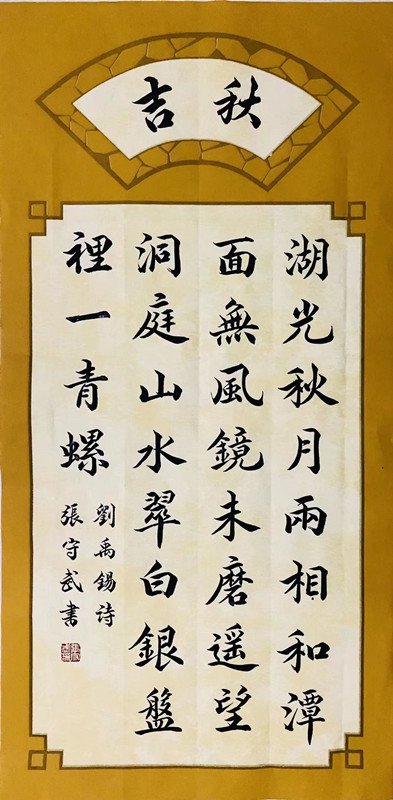 秋吉
湖光秋月兩相和潭
面無風鏡未磨遥望
洞庭山水翠白銀盤
裡一青螺
劉禹錫詩
張守武書